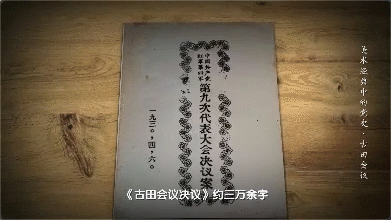 中国共产党
红军第四军
第九次代表大会决议案
一九三〇·四·六
美术经典中的党史·古田会议
《古田会议决议》约三万余字